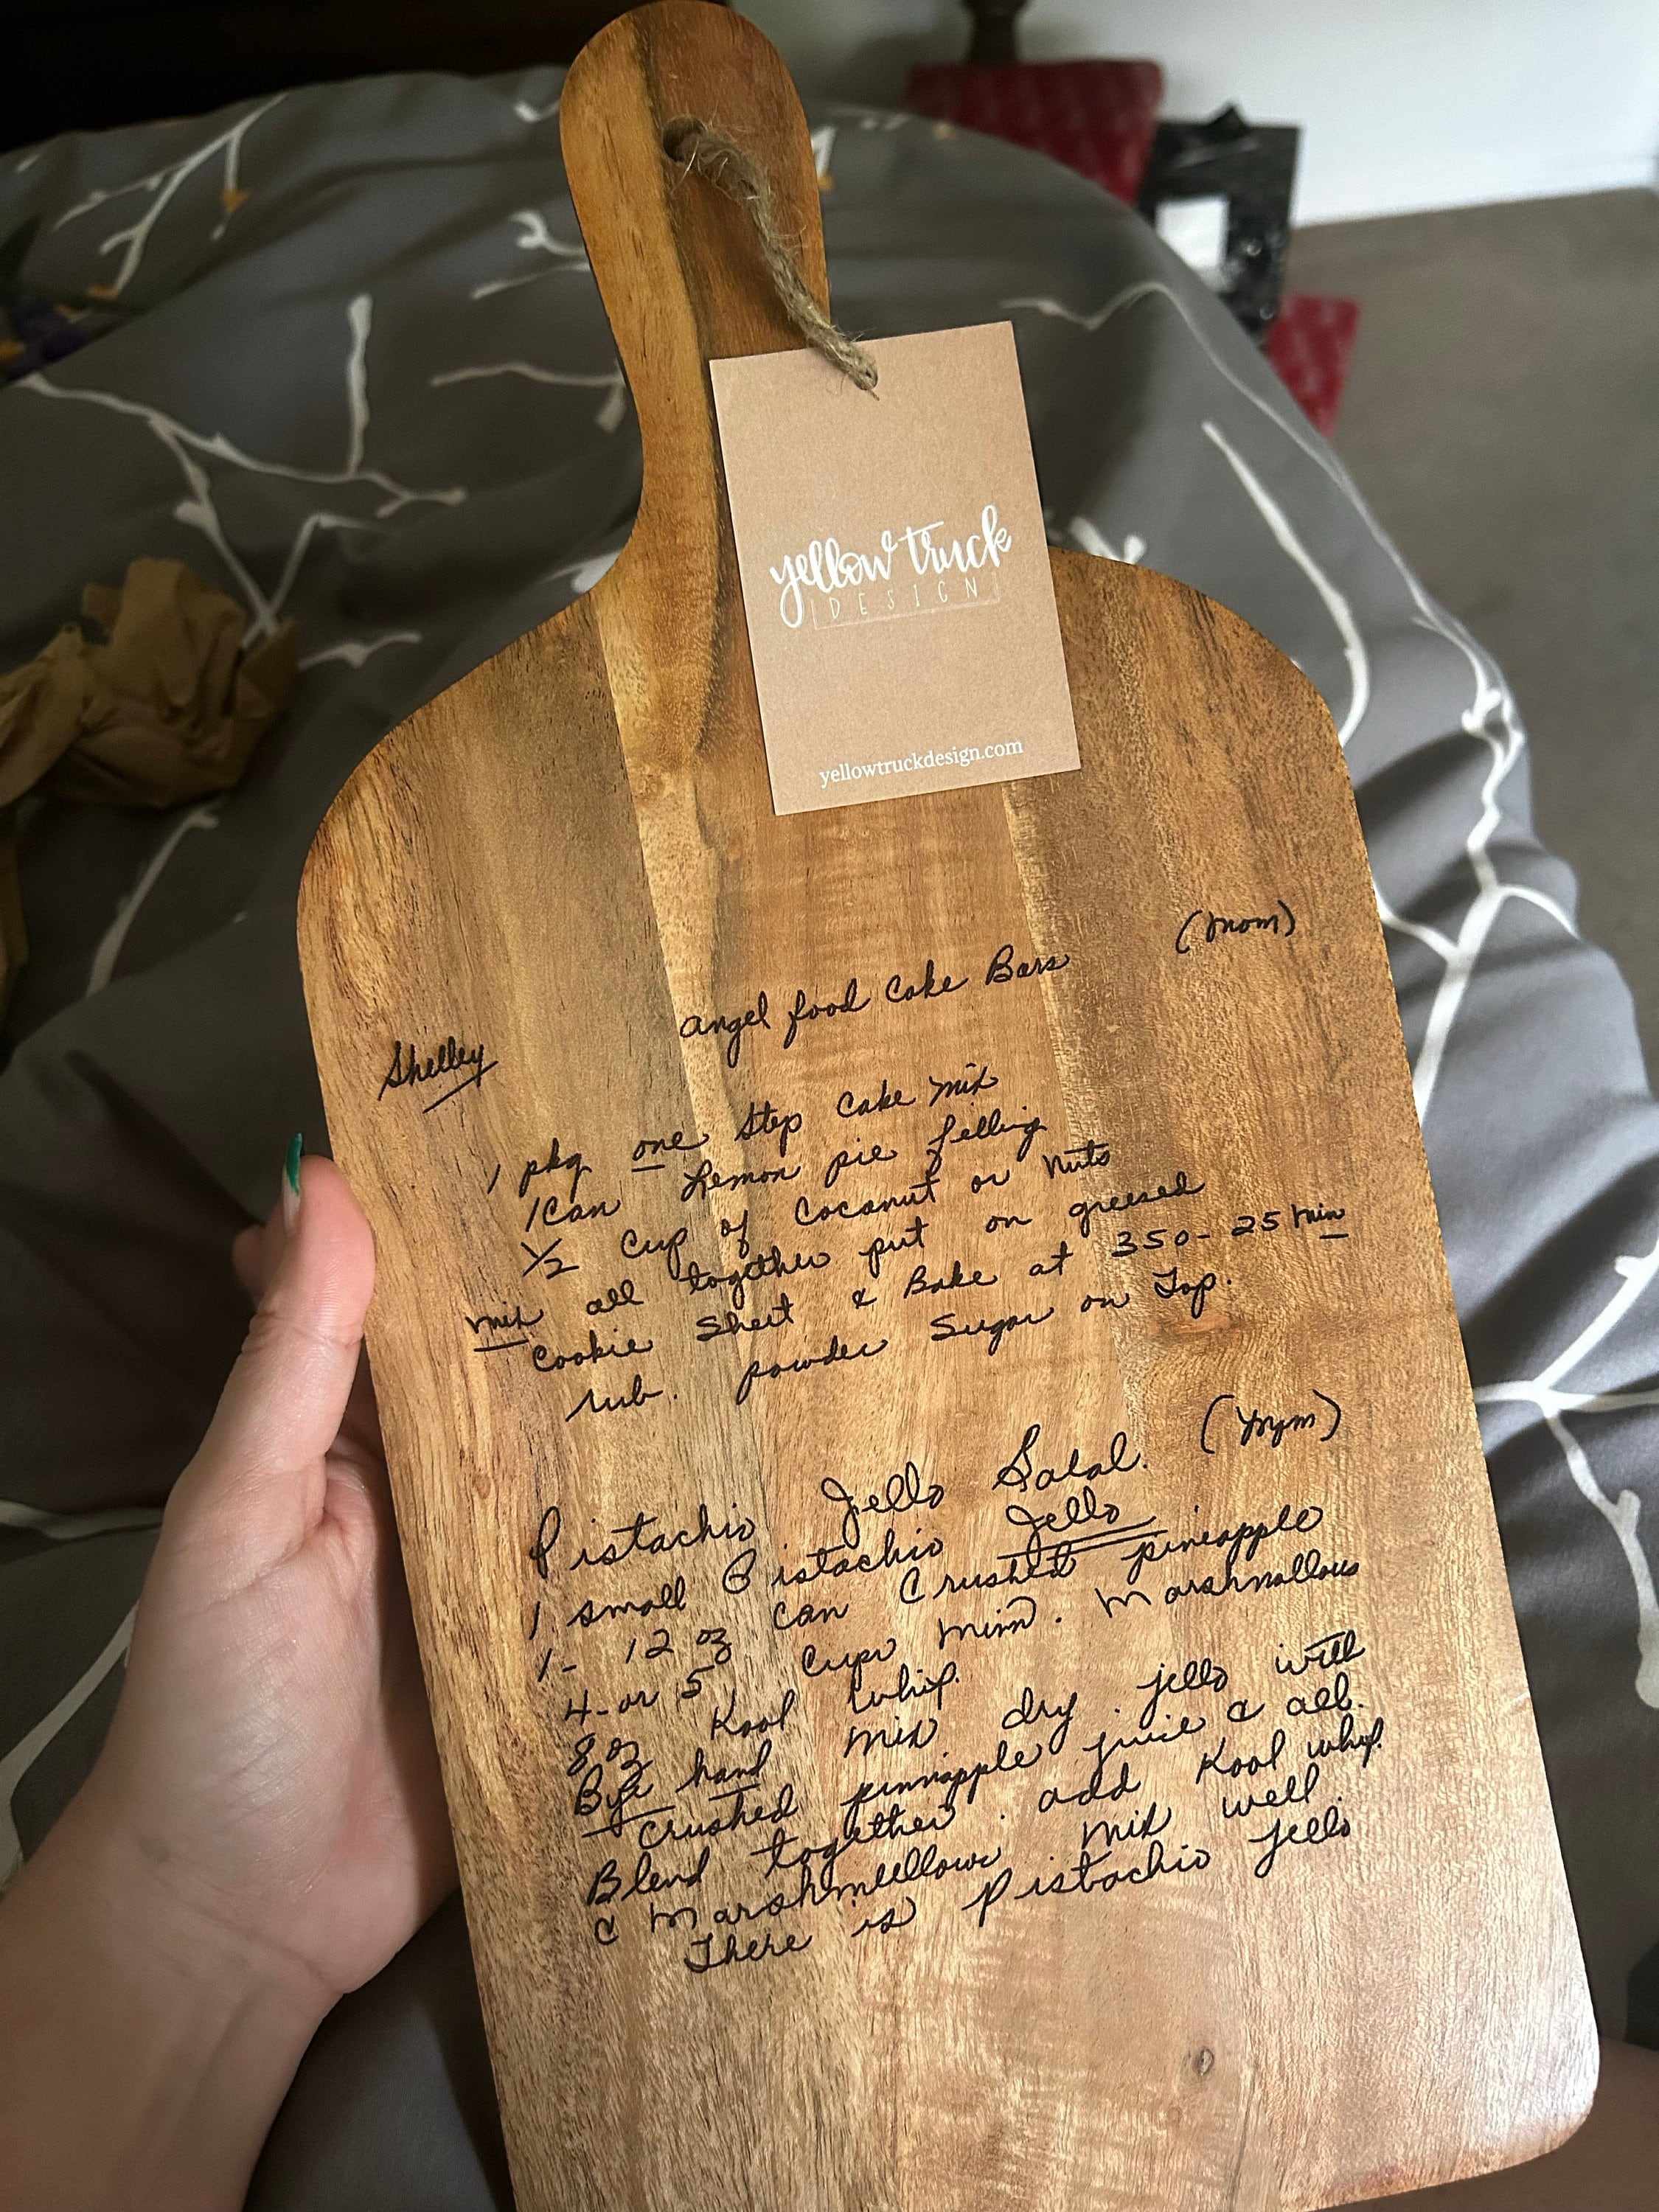 yellow truck
DESIGN
yellowtruckdesign.com
(Mom)
angel food Cake Bars
Shelley
1 pkg one Step Cake Mix
1 Can Lemon pie filling
1/2 Cup of Coconut or Nuts
mix all together put on greased
Cookie Sheet & Bake at 350 - 25 min
rub. powder Sugar on Top.
(Mom)
Pistachio Jello Salad.
1 small Pistachio Jello
1 - 12 oz can Crushed pineapple
4 - or 5 Cups Mini. Marshmallows
8 oz Kool Whip.
By hand mix dry. jello with
crushed pinnapple juice & all.
Blend together. add Kool whip.
& Marshmellows mix well.
There is Pistachio Jello